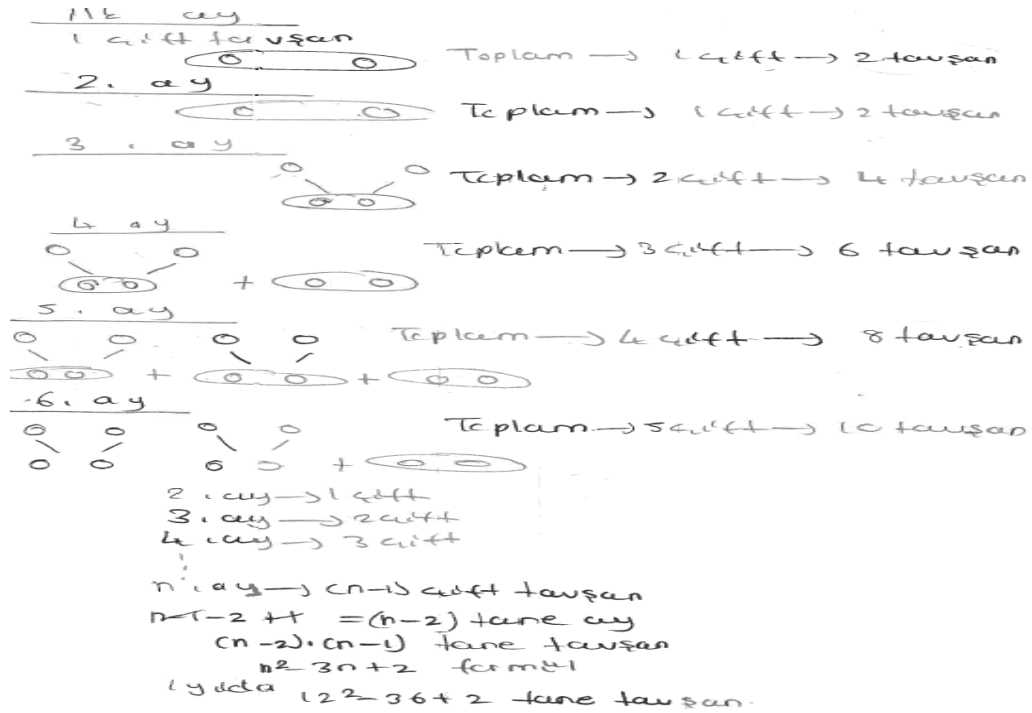 İlk ay
1 çift tavşan
Toplam → 1 çift → 2 tavşan
2. ay
Toplam → 1 çift → 2 tavşan
3. ay
Toplam → 2 çift → 4 tavşan
4 ay
Toplam → 3 çift → 6 tavşan
+
5. ay
Toplam → 4 çift → 8 tavşan
+ +
6. ay
Toplam → 5 çift → 10 tavşan
+
2. ay → 1 çift
3. ay → 2 çift
4. ay → 3 çift
n. ay → (n-1) çift tavşan
n-1-2+1 = (n-2) tane ay
(n-2).(n-1) tane tavşan
n²-3n+2 formül
1 yılda 12²-36+2 tane tavşan.